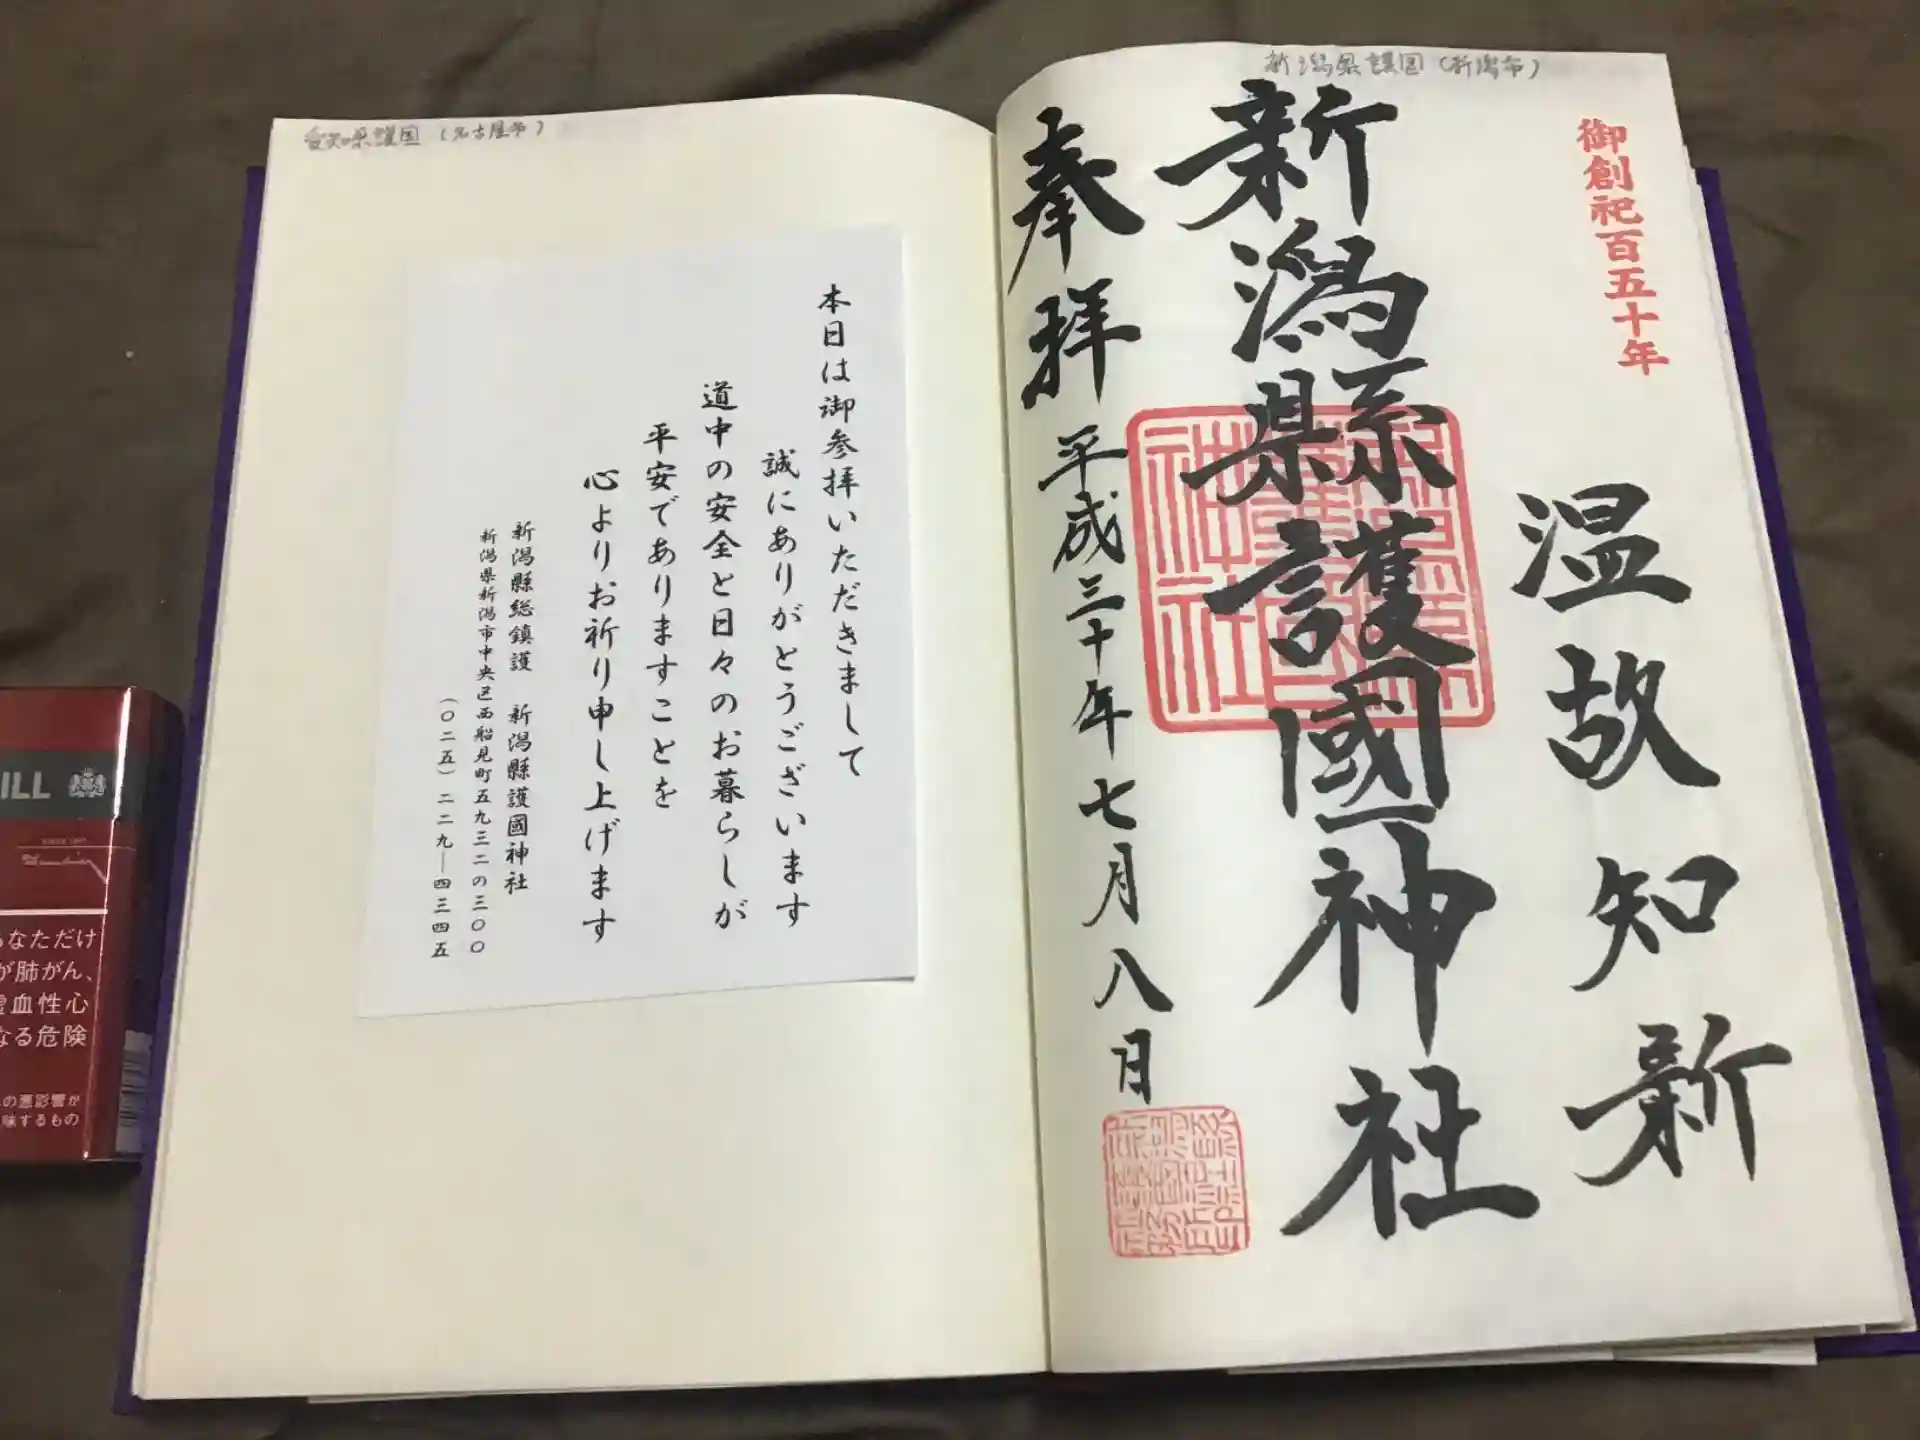 新潟県護国(新潟市)
御創祀百五十年
温故知新
新潟縣護國神社
奉拝
平成三十年七月八日
愛知県護国(名古屋市)
本日は御参拝いただきまして
誠にありがとうございます
道中の安全と日々のお暮らしが
平安でありますことを
心よりお祈り申し上げます
新潟縣総鎮護 新潟縣護國神社
新潟県新潟市中央区西船見町五九三二の三〇〇
(〇二五)二二九―四三四五
ILL
なただけ
が肺がん、
虚血性心
なる危険
の悪影響が
味するもの